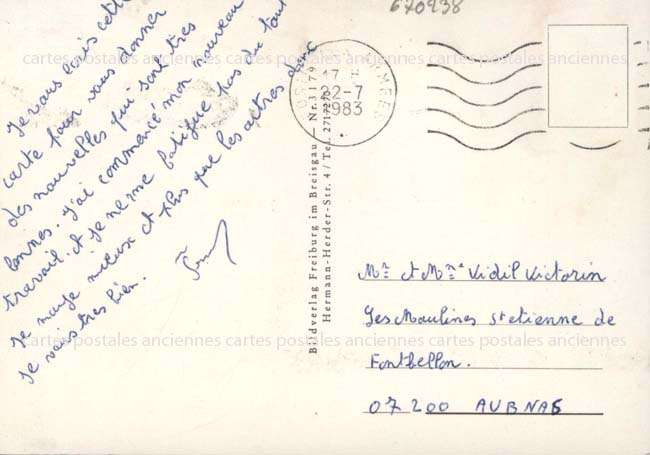 670938
Je vous écris cette
carte pour vous donner
des nouvelles qui sont très
bonnes. J'ai commencé mon nouveau
travail et je ne me fatigue pas du tout
Je mange mieux et plus que les autres
Je vais très bien.
17 H
22-7
1983
Bildverlag Freiburg im Breisgau — Nr. 3179
Hermann-Herder-Str. 4 / Tel. 2717270
Mr et Mme Vidil Victorin
Les Moulines St etienne de
Fontbellon.
07200 AUBNAS
cartes postales anciennes cartes postales anciennes cartes postales anciennes
cartes postales anciennes cartes postales anciennes cartes postales anciennes